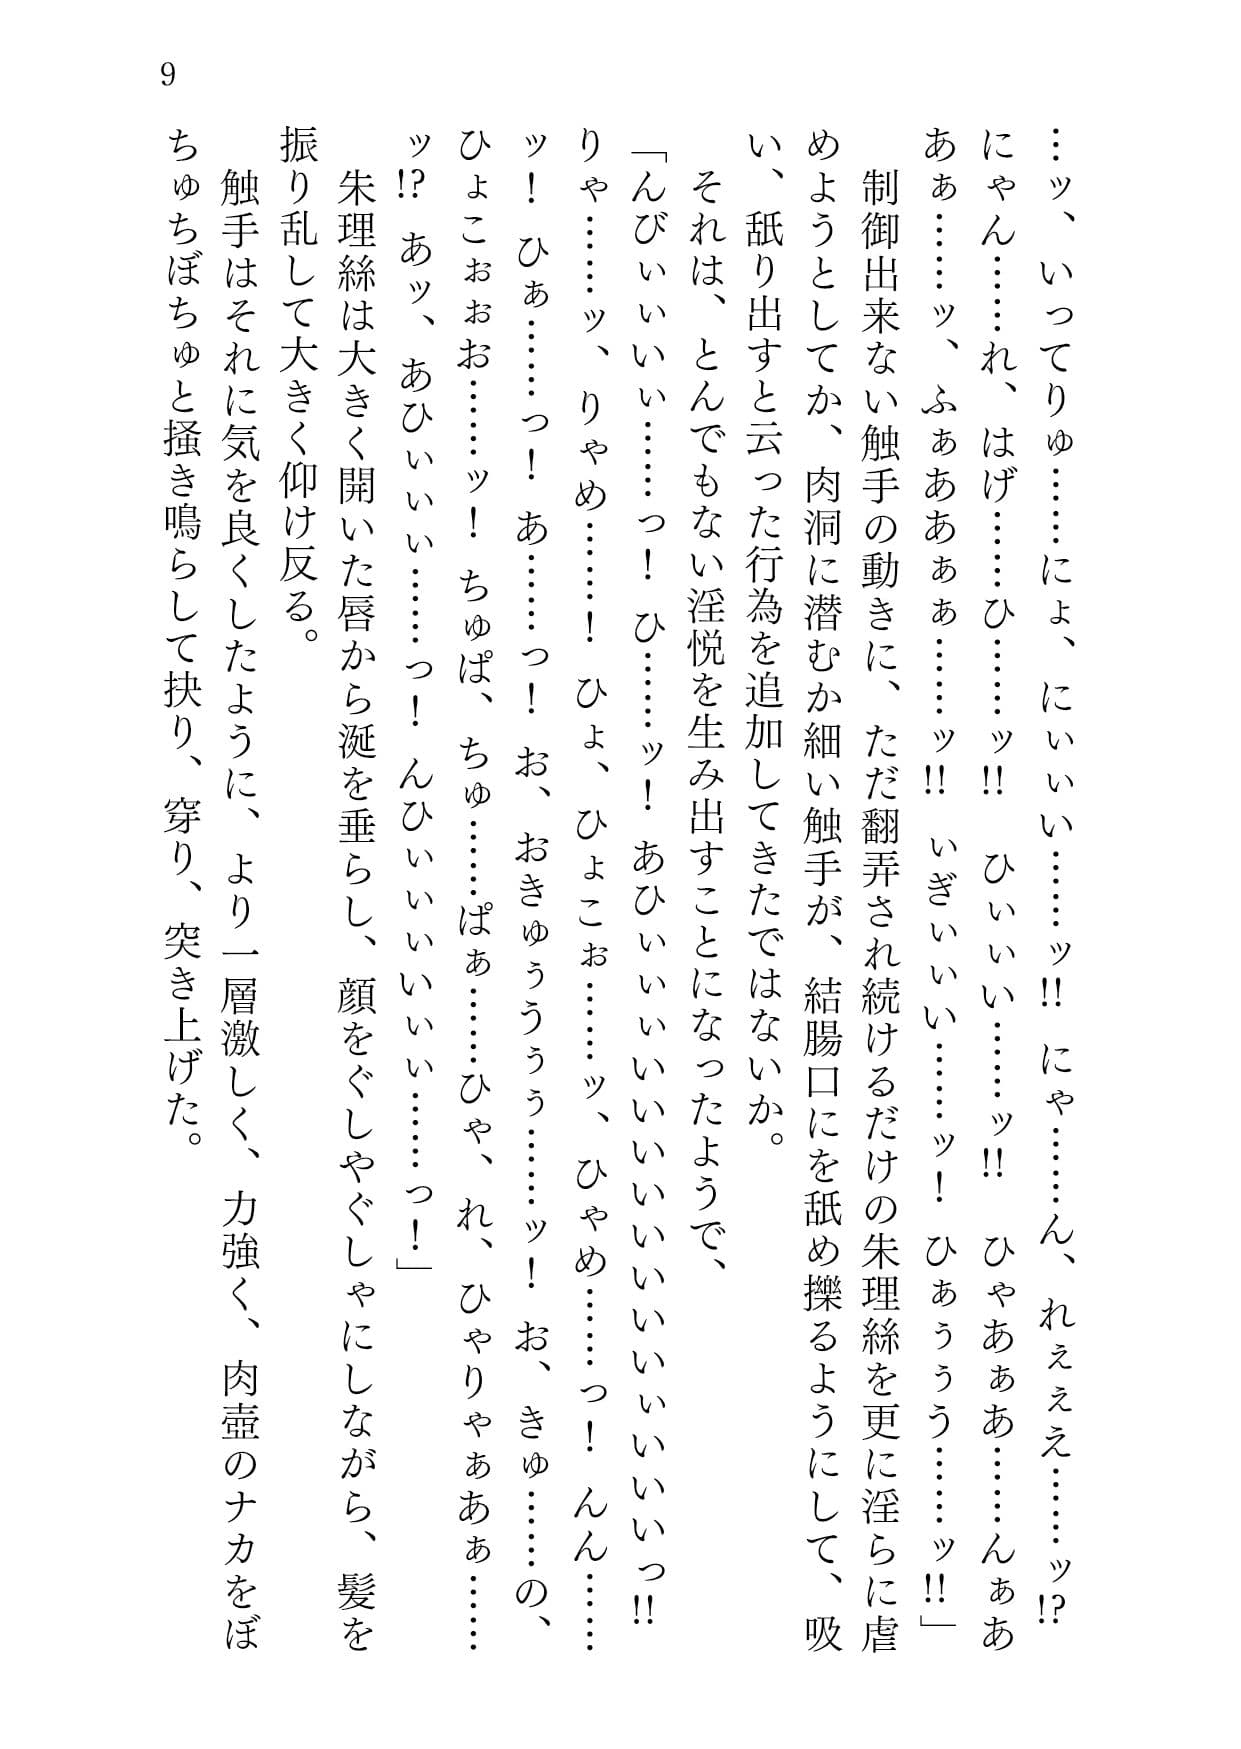 9
…ッ、いってりゅ……にょ、にぃぃい……ッ!! にゃ……ん、れぇぇえ……ッ!?
にゃん……れ、はげ……ひ……ッ!! ひぃぃい……ッ!! ひゃあぁあ……んぁあ
あぁ……ッ、ふぁああぁぁ……ッ!! いぎぃぃい……ッ! ひぁぅぅう……ッ!!」
　制御出来ない触手の動きに、ただ翻弄され続けるだけの朱理絲を更に淫らに虐
めようとしてか、肉洞に潜むか細い触手が、結腸口にを舐め擽るようにして、吸
い、舐り出すと云った行為を追加してきたではないか。
　それは、とんでもない淫悦を生み出すことになったようで、
「んびぃぃいぃ……っ! ひ……ッ! あひぃぃぃいいいいいいいぃいいいっ!!
りゃ……ッ、りゃめ……! ひょ、ひょこぉ……ッ、ひゃめ……っ! んん……
ッ! ひぁ……っ! あ……っ! お、おきゅぅうぅぅ……ッ! お、きゅ……の、
ひょこぉぉお……ッ! ちゅぱ、ちゅ……ぱぁ……ひゃ、れ、ひゃりゃぁあぁ……
ッ!? あッ、あひぃぃい……っ! んひぃぃぃいぃい……っ!」
　朱理絲は大きく開いた唇から涎を垂らし、顔をぐしゃぐしゃにしながら、髪を
振り乱して大きく仰け反る。
　触手はそれに気を良くしたように、より一層激しく、力強く、肉壺のナカをぼ
ちゅちぼちゅと掻き鳴らして抉り、穿り、突き上げた。